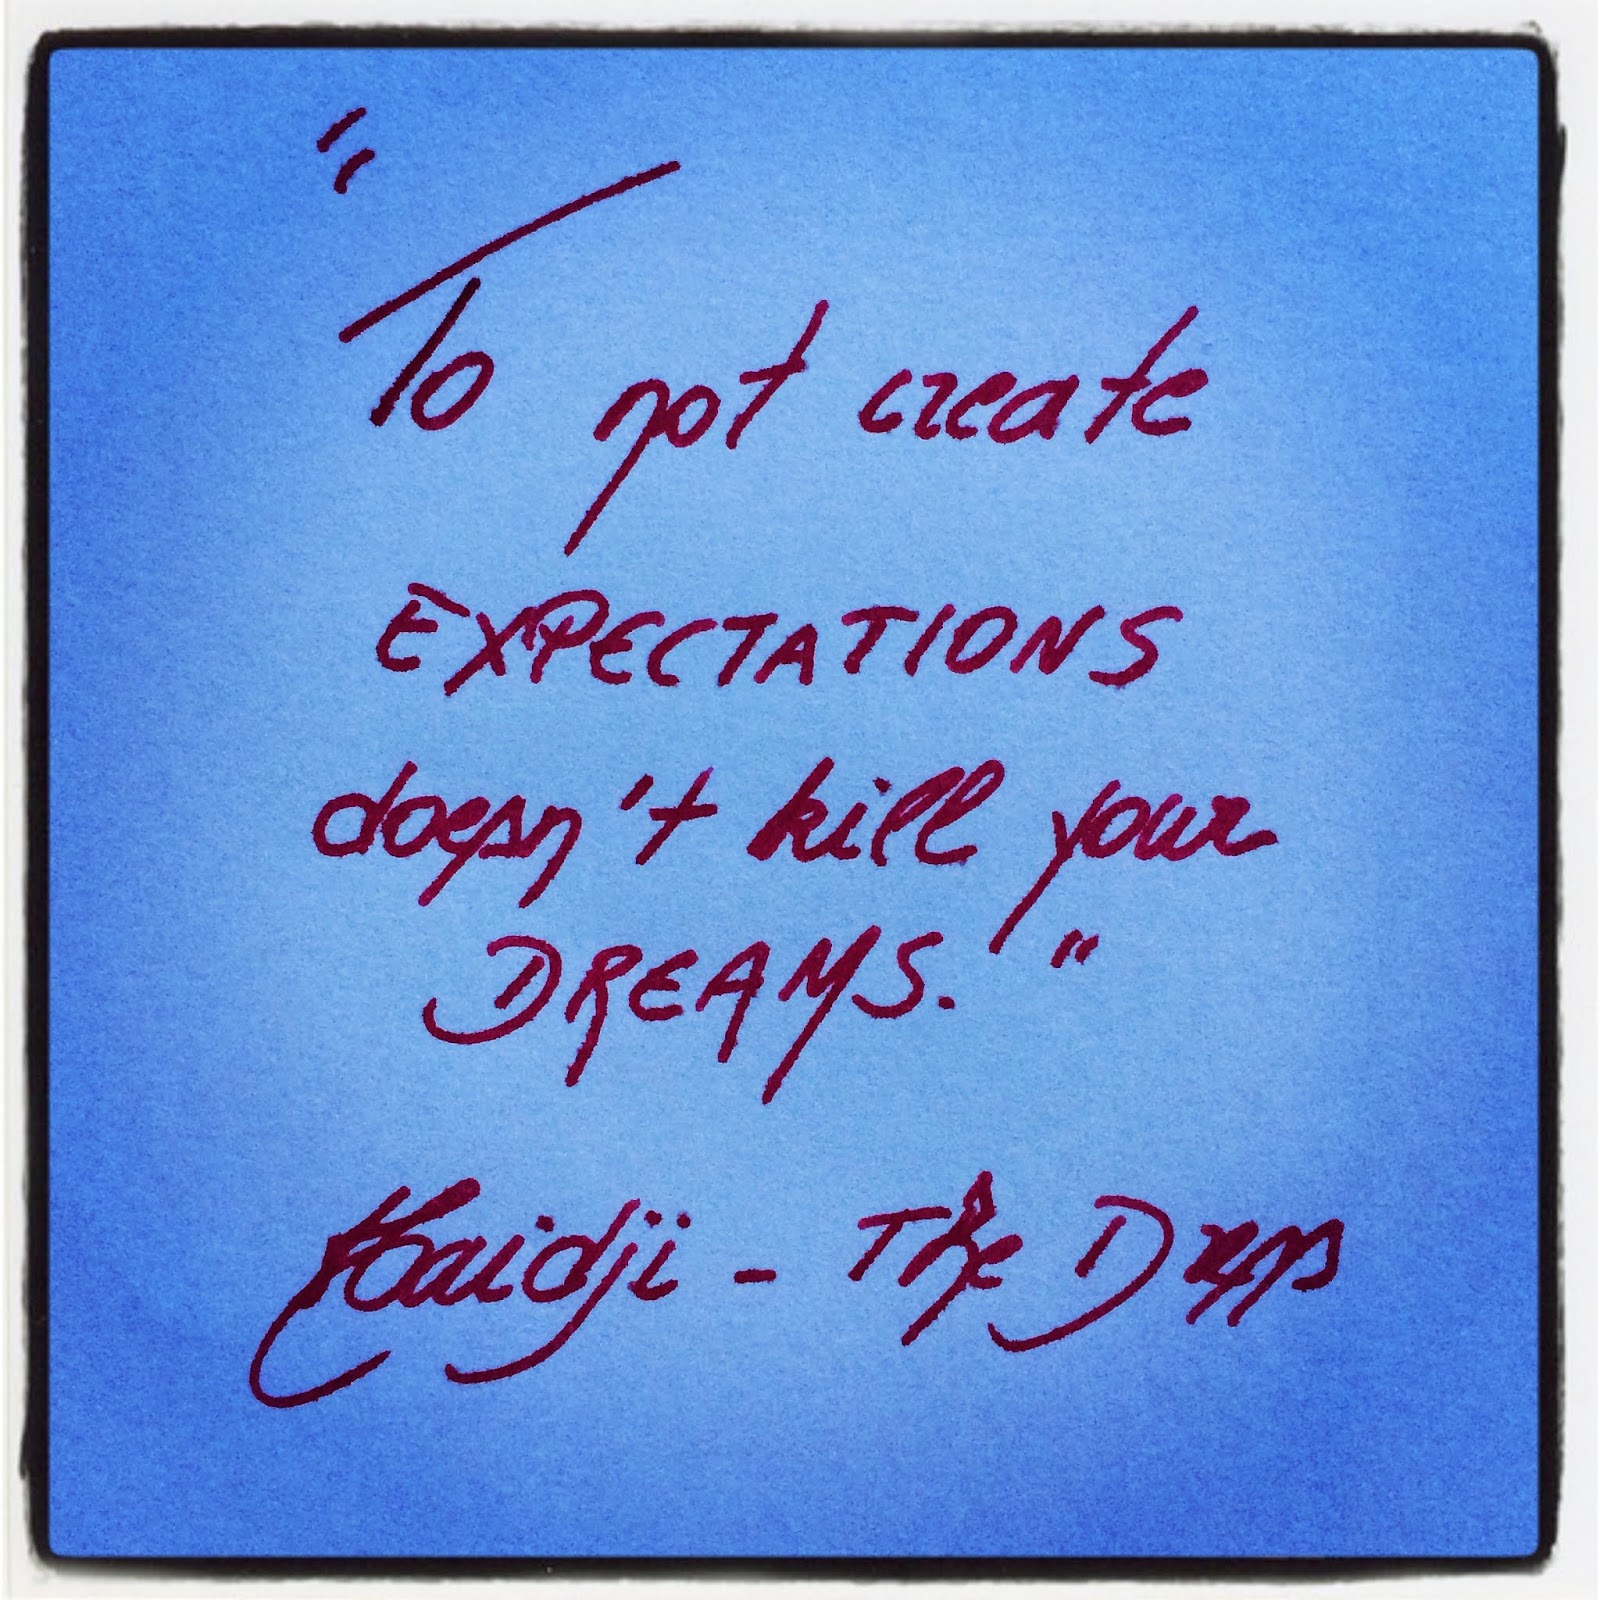 "To not create
EXPECTATIONS
doesn't kill your
DREAMS."
Haidji - The Dress